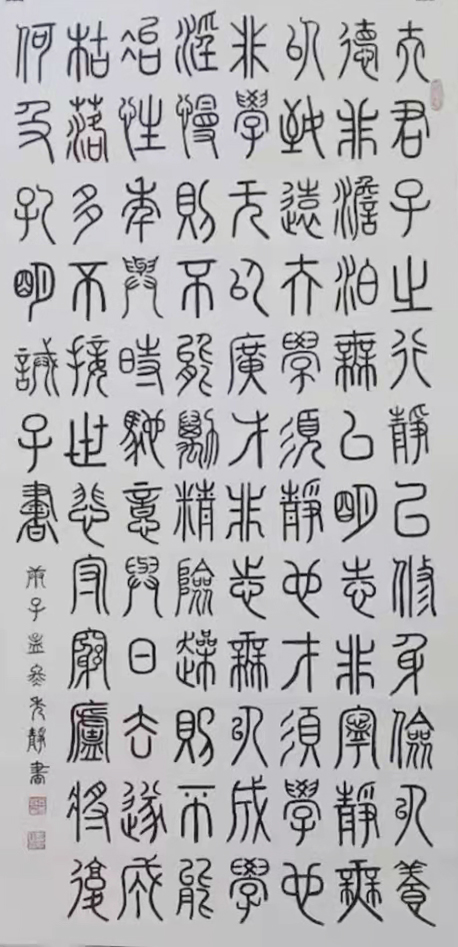 夫君子之行靜以修身儉以養
德非澹泊無以明志非寧靜無
以致遠夫學須靜也才須學也
非學无以廣才非志無以成學
淫慢則不能勵精險躁則不能
冶性年與時馳意與日去遂成
枯落多不接世悲守窮廬將復
何及孔明誡子書
庚子孟冬秀靜書